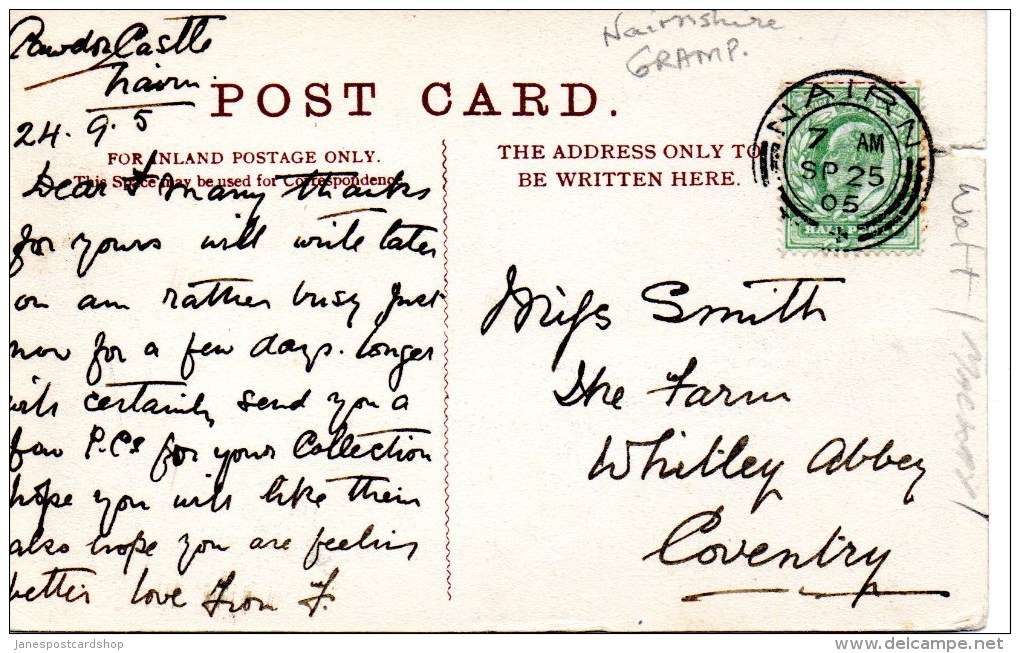 Cawdor Castle
Nairn
24.9.5
Nairnshire
GRAMP.
POST CARD.
FOR INLAND POSTAGE ONLY.
This Space may be used for Correspondence
THE ADDRESS ONLY TO
BE WRITTEN HERE.
NAIRN
7 AM
SP 25
05
HALF PENNY
Dear F many thanks
for yours will write later
on am rather busy just
now for a few days. longer
will certainly send you a
few P.Cs for your Collection
hope you will like them
also hope you are feeling
better love From F.
Miss Smith
The Farm
Whitley Abbey
Coventry
Watt
janespostcardshop
delcampe.net